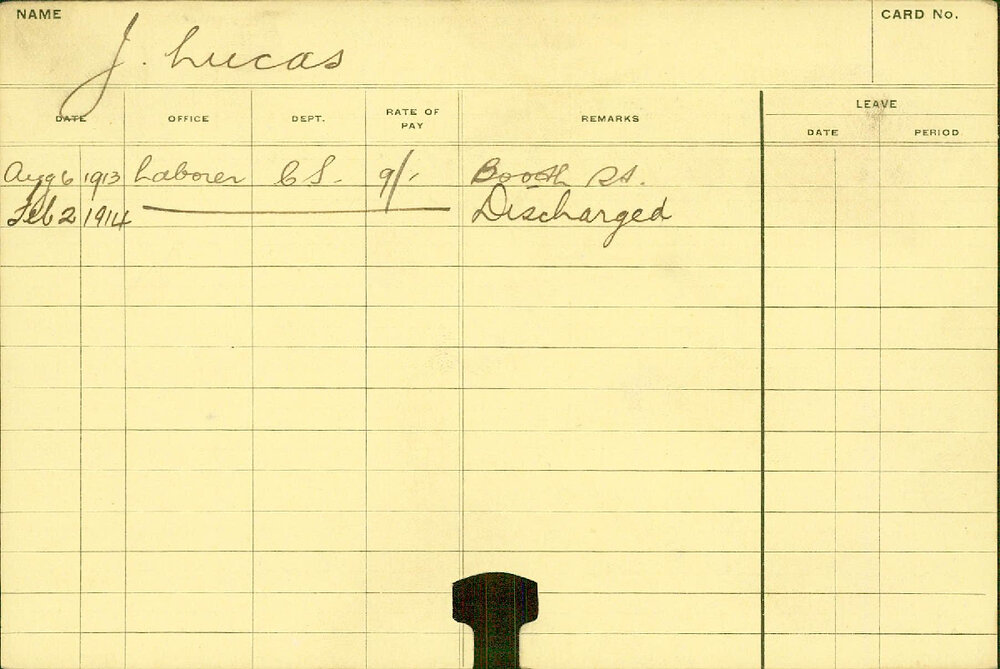 NAME J. Lucas CARD No.
DATE OFFICE DEPT. RATE OF PAY REMARKS LEAVE
DATE PERIOD
Aug 6 1913 Laborer C S. 9/- Booth St.
Feb 2 1914 Discharged